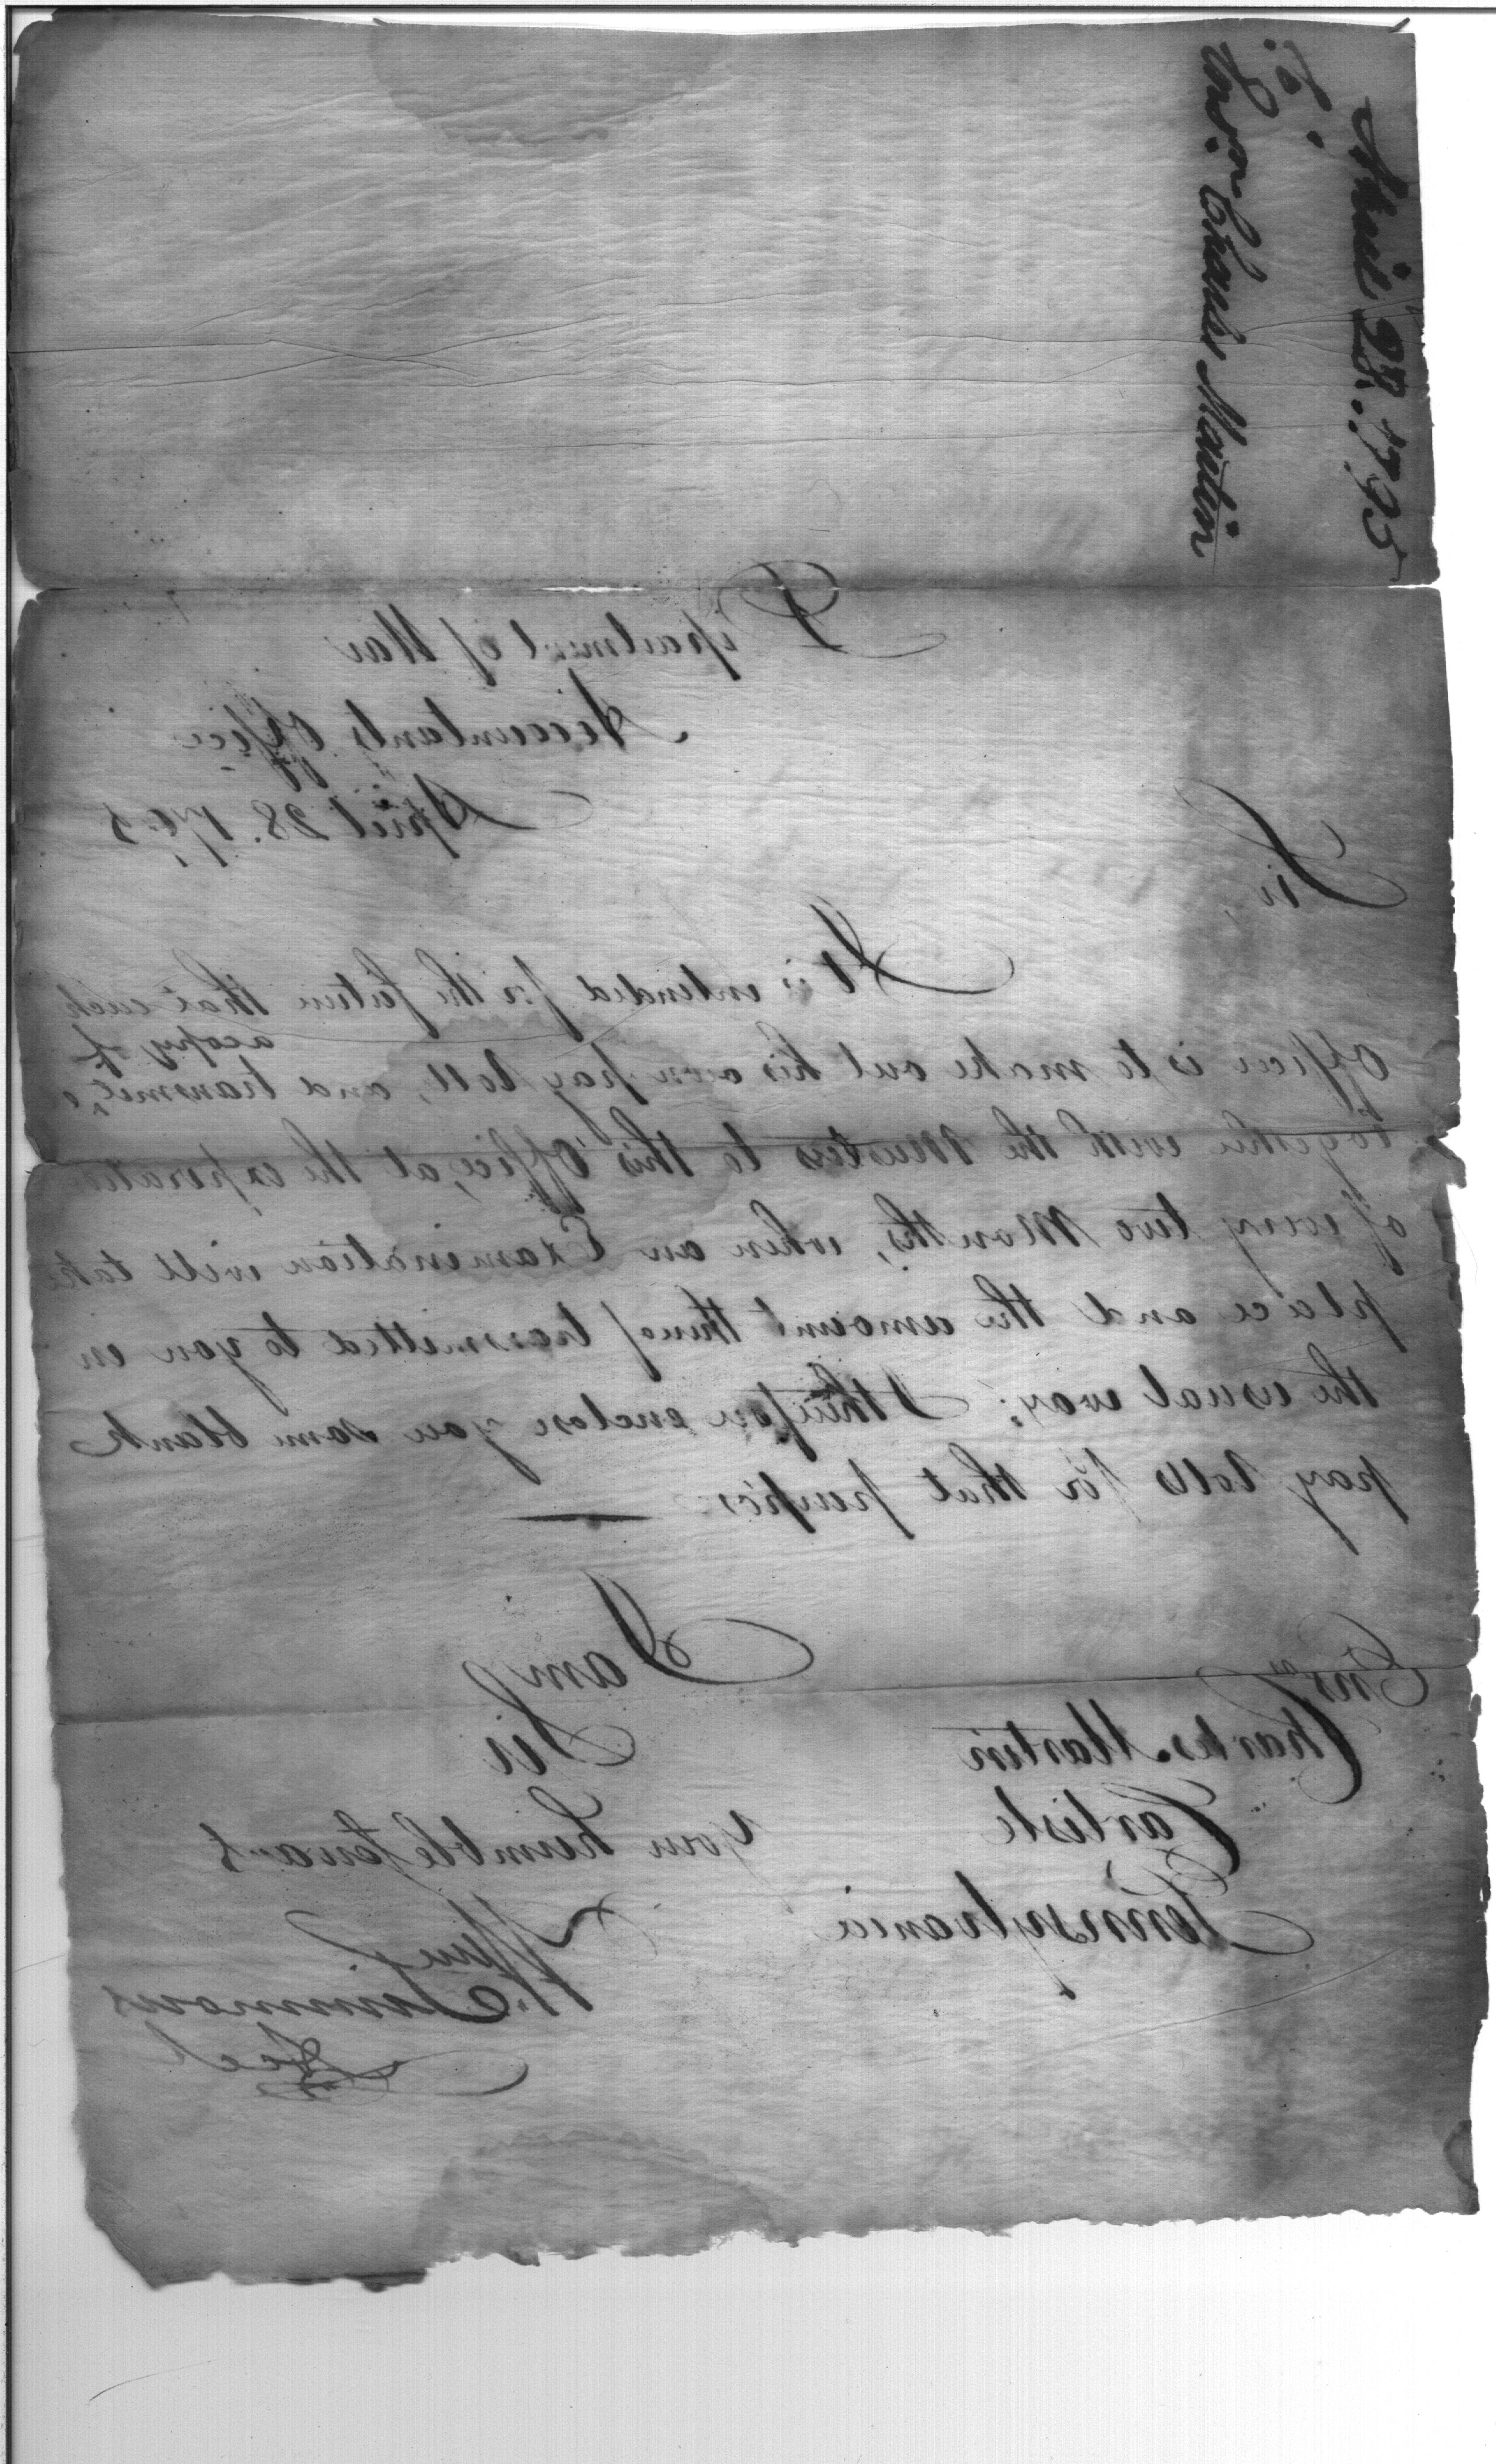 April 28th. 1795
To:
Ens.n Charles Martin
Department of War
Accountants Office
April 28. 1795
Sir,
It is intended for the future that each
Officer is to make out his own pay roll, and transmit a copy of
together with the Musters to this Office, at the expiration
of every two Months, when an Examination will take
place and the amount thereof transmitted to you in
the usual way; I therefore enclose you some blank
pay rolls for that purpose
I am
Sir
Your humble Servant
Wm Simmons
Ensn
Charles Martin
Carlisle
Pennsylvania